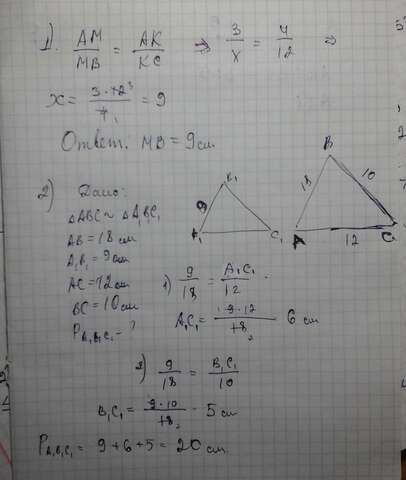 1). AM/MB = AK/KC ⇒ 3/x = 4/12 ⇒
x = 3·12³/4₁ = 9
Ответ: MB = 9см
2) Дано:
△ABC ~ △A₁B₁C₁
AB = 18 см
A₁B₁ = 9см
AC = 12см
BC = 10см
P A₁B₁C₁ - ?
9
A₁
C₁
B
18
10
A
12
C
1) 9/18 = A₁C₁/12
A₁C₁ = 9·12/18₂ 6 см
2) 9/18 = B₁C₁/10
B₁C₁ = 9·10/18₂ - 5 см
P A₁B₁C₁ = 9+6+5 = 20 см.